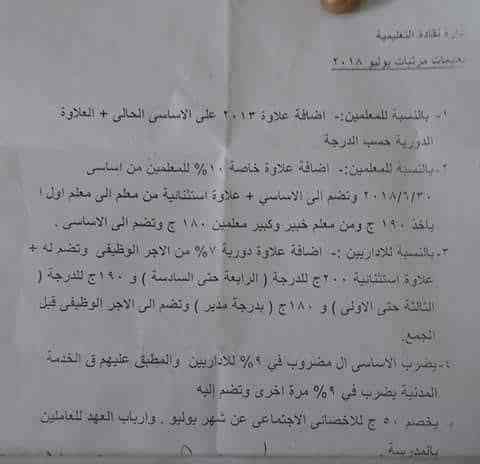 إدارة نقادة التعليمية
تعليمات مرتبات يوليو ٢٠١٨
١- بالنسبة للمعلمين:- اضافة علاوة ٢٠١٣ على الاساسى الحالى + العلاوة
الدورية حسب الدرجة
٢- بالنسبة للمعلمين:- اضافة علاوة خاصة ١٠% للمعلمين من اساسى
٢٠١٨/٦/٣٠ وتضم الى الاساسي + علاوة استثنائية من معلم الى معلم اول ا
ياخذ ١٩٠ ج ومن معلم خبير وكبير معلمين ١٨٠ ج وتضم الى الاساسى .
٣- بالنسبة للاداريين :- اضافة علاوة دورية ٧% من الاجر الوظيفى وتضم له +
علاوة استثنائية ٢٠٠ج للدرجة ( الرابعة حتى السادسة ) و ١٩٠ج للدرجة (
الثالثة حتى الاولى ) و ١٨٠ج ( بدرجة مدير ) وتضم الى الاجر الوظيفى قبل
الجمع.
٤- يضرب الاساسى ال مضروب في ٩% للاداريين والمطبق عليهم ق الخدمة
المدنية يضرب في ٩% مرة اخرى وتضم إليه
يخصم ٥٠ ج للاخصائى الاجتماعى عن شهر يوليو . وارباب العهد للعاملين
بالمدرسة .